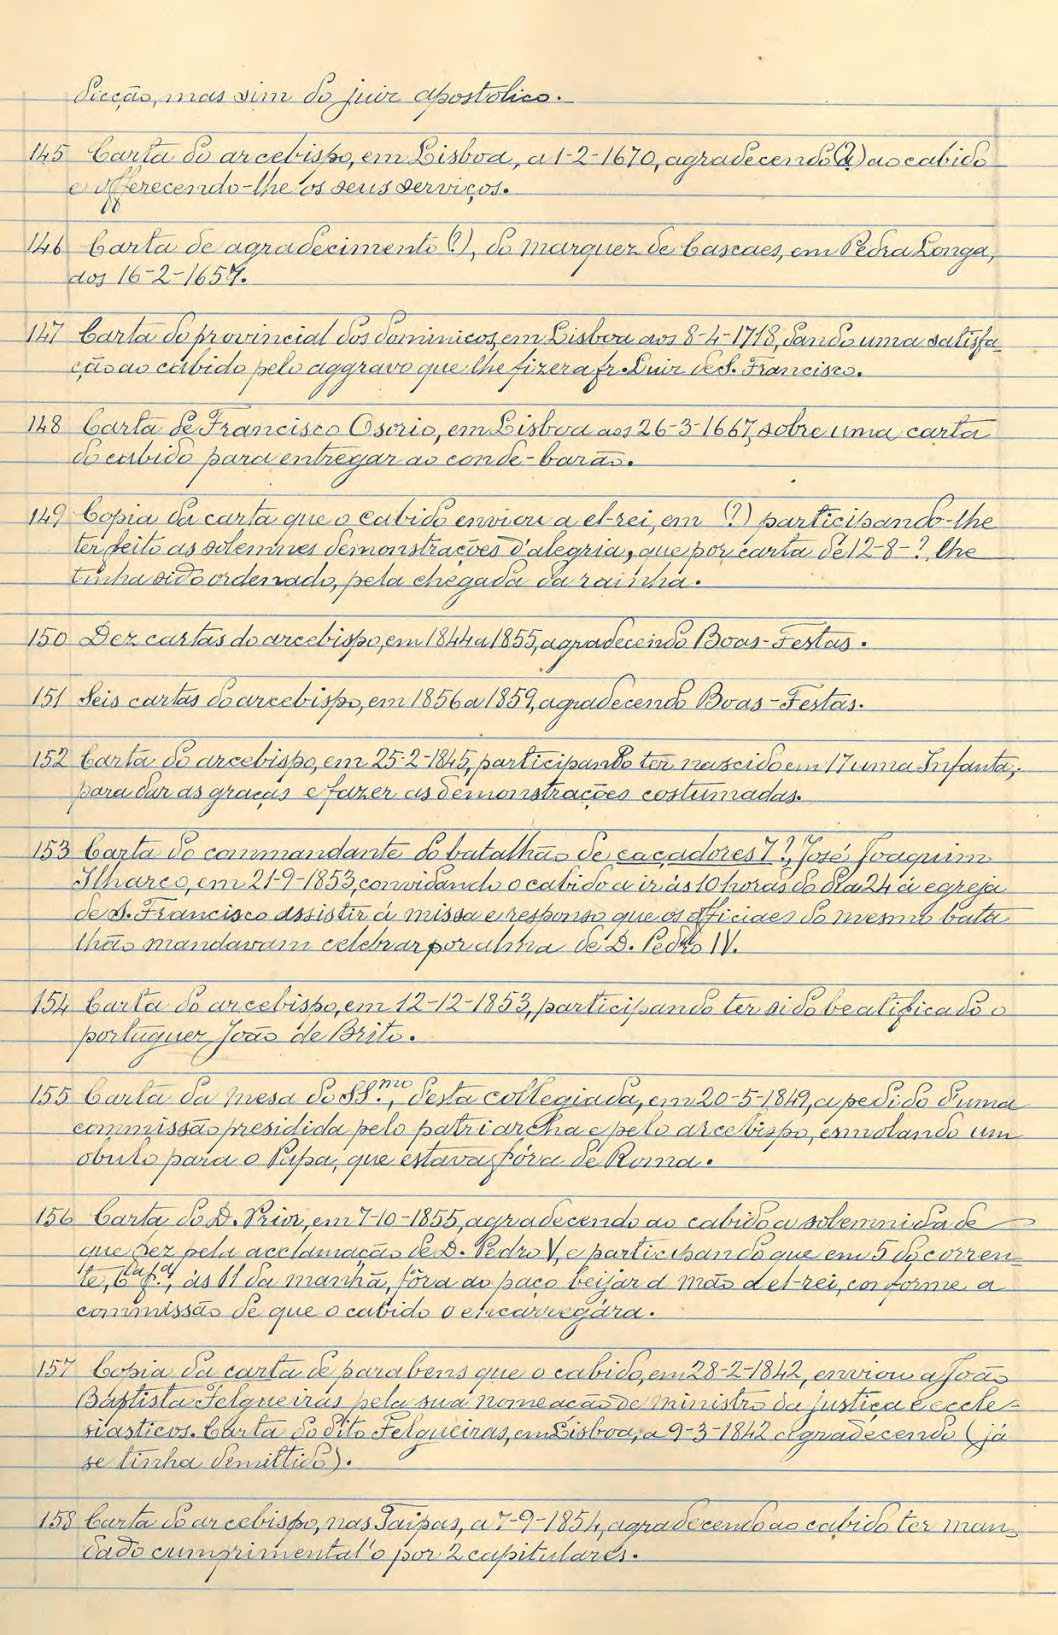 dicção, mas sim do juiz apostolico.
145 Carta do arcebispo, em Lisboa, a 1-2-1670, agradecendo (?) ao cabido
e offerecendo-lhe os seus serviços.
146 Carta de agradecimento (?), do marquez de Cascaes, em Pedra Longa,
aos 16-2-1657.
147 Carta do provincial dos dominicos, em Lisboa aos 8-4-1718, dando uma satisfa-
ção ao cabido pelo aggravo que lhe fizera fr. Luiz de S. Francisco.
148 Carta de Francisco Osorio, em Lisboa aos 26-3-1667, sobre uma carta
do cabido para entregar ao conde-barão.
149 Copia da carta que o cabido enviou a el-rei, em (?) participando-lhe
ter feito as solemnes demonstrações d'alegria, que por carta de 12-8-? lhe
tinha sido ordenado, pela chegada da rainha.
150 Dez cartas do arcebispo, em 1844 a 1855, agradecendo Boas-Festas.
151 Seis cartas do arcebispo, em 1856 a 1859, agradecendo Boas-Festas.
152 Carta do arcebispo, em 25-2-1845, participando ter nascido em 17 uma Infanta;
para dar as graças e fazer as demonstrações costumadas.
153 Carta do commandante do batalhão de caçadores 7?, José Joaquim
Ilharco, em 21-9-1853, convidando o cabido a ir ás 10 horas do dia 24 á egreja
de S. Francisco assistir á missa e responso que os officiaes do mesmo bata
lhão mandavam celebrar por alma de D. Pedro IV.
154 Carta do arcebispo, em 12-12-1853, participando ter sido beatificado o
portuguez João de Brito.
155 Carta da Mesa do SS.mo, desta collegiada, em 20-5-1849, a pedido d'uma
commissão presidida pelo patriarcha e pelo arcebispo, esmolando um
obulo para o Papa, que estava fóra de Roma.
156 Carta do D. Prior, em 7-10-1855, agradecendo ao cabido a solemnidade
que fez pela acclamação de D. Pedro V, e participando que em 5 do corren-
te, 6ª fª, ás 11 da manhã, fôra ao paço beijar a mão a el-rei, conforme a
commissão de que o cabido o encarregára.
157 Copia da carta de parabens que o cabido, em 28-2-1842, enviou a João
Baptista Felgueiras pela sua nomeação de ministro da justiça e eccle-
siasticos. Carta do dito Felgueiras, em Lisboa, a 9-3-1842 agradecendo (já
se tinha demittido).
158 Carta do arcebispo, nas Taipas, a 7-9-1854, agradecendo ao cabido ter man-
dado cumprimental'o por 2 capitulares.